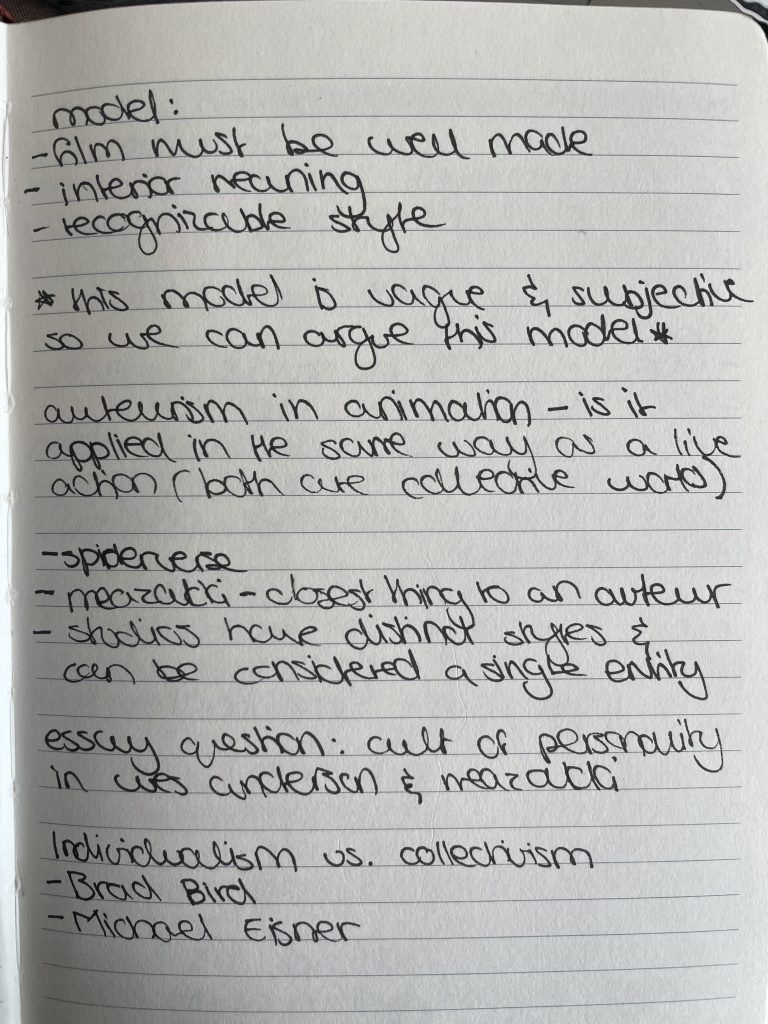 model:
- film must be well made
- interior meaning
- recognizable style
* this model is vague & subjective
so we can argue this model *
auteurism in animation - is it
applied in the same way as a live
action (both are collective works)
- spiderverse
- meazatki - closest thing to an auteur
- studios have distinct styles &
can be considered a single entity
essay question: cult of personality
in wes anderson & meazatki
Individualism vs. collectivism
- Brad Bird
- Michael Eisner